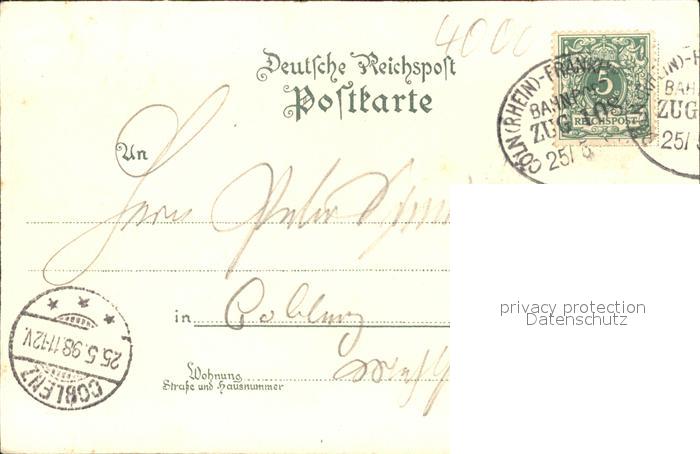 4000
Deutsche Reichspost
Postkarte
5
REICHSPOST
CÖLN (RHEIN)-FRANKF
BAHNPOST
ZUG 108
25/5
(RHEIN)-
BAH
ZUG
25/
An
Herrn Peter
in Coblenz
Wohnung
Straße und Hausnummer
COBLENZ
25.5.98.11-12V.
privacy protection
Datenschutz